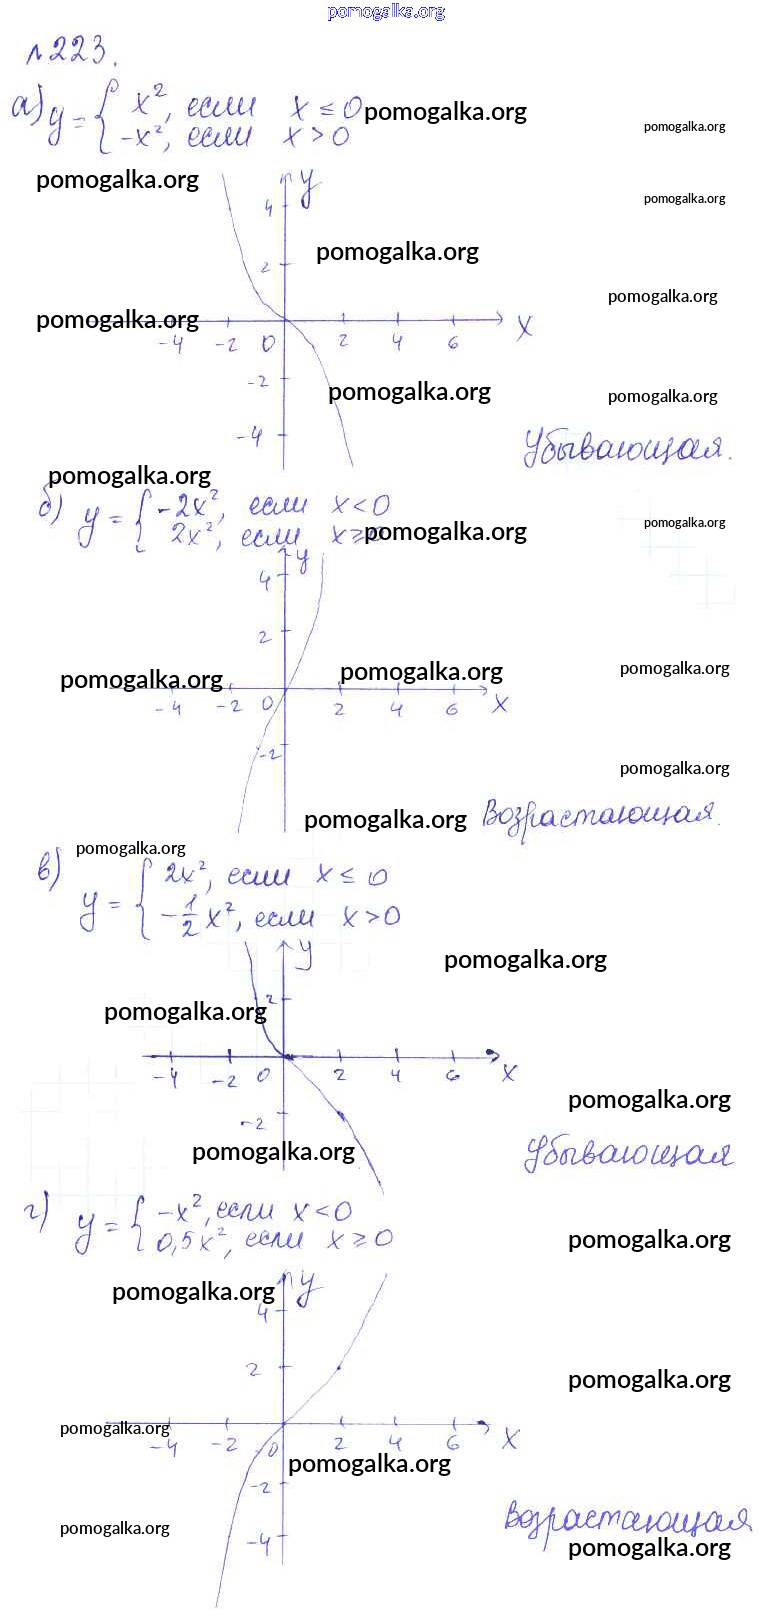 pomogalka.org
№223.
а) y = { x², если x ≤ 0 pomogalka.org
-x², если x > 0 pomogalka.org
pomogalka.org y
4 pomogalka.org
2 pomogalka.org
pomogalka.org pomogalka.org
-4 -2 0 2 4 6 x
-2 pomogalka.org pomogalka.org
-4 Убывающая.
pomogalka.org
б) y = { -2x², если x < 0
2x², если x ≥ 0 pomogalka.org pomogalka.org
y
4
2
pomogalka.org pomogalka.org pomogalka.org
-4 -2 0 2 4 6 x
-2
pomogalka.org
pomogalka.org Возрастающая.
pomogalka.org
в) y = { 2x², если x ≤ 0
-1/2 x², если x > 0
y pomogalka.org
2
pomogalka.org
-4 -2 0 2 4 6 x
pomogalka.org
-2
pomogalka.org Убывающая
г) y = { -x², если x < 0
0,5x², если x ≥ 0 pomogalka.org
pomogalka.org y
4
2
pomogalka.org
pomogalka.org
-4 -2 0 2 4 6 x
pomogalka.org
-2
pomogalka.org Возрастающая
-4 pomogalka.org